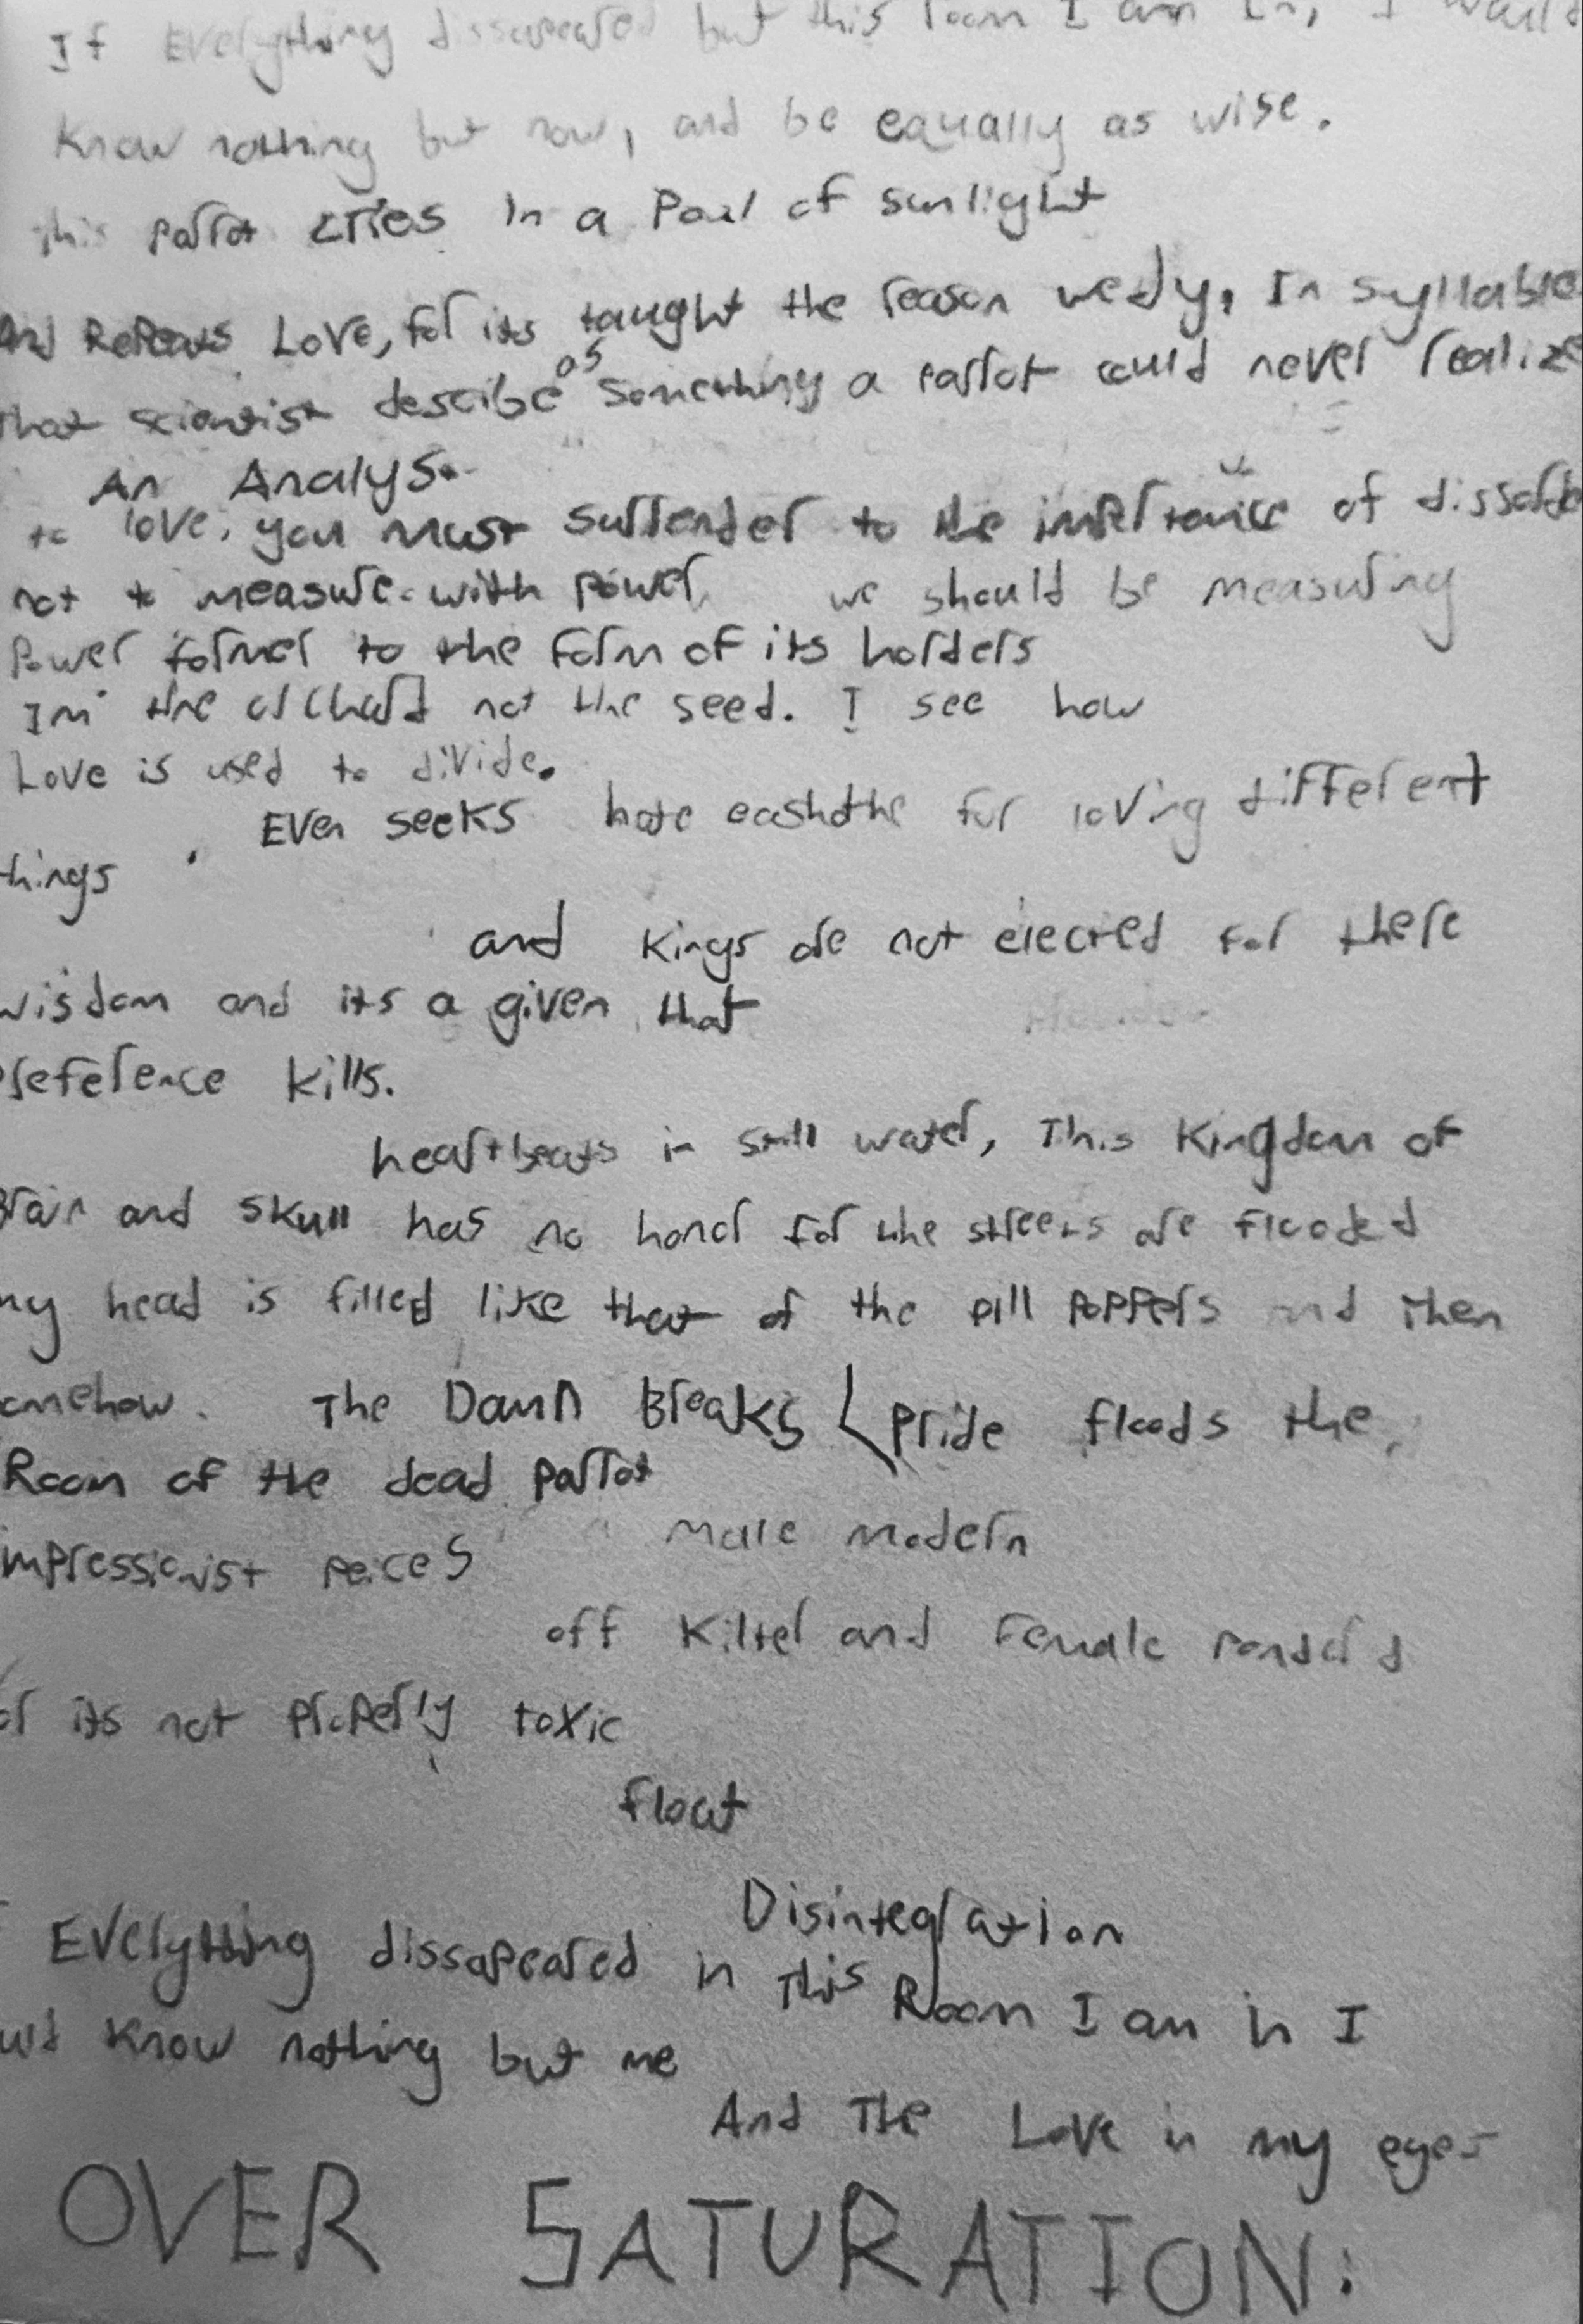 If Everything dissapeared but this room I am in, I would
Know nothing but now, and be equally as wise.
this parrot cries in a Pool of sunlight
And Repeats Love, for its taught the reason we dy, In syllable
that scientist describe as something a parrot could never realize
An Analys.
to love, you must surrender to the importance of
not to measure with power we should be measuring
Power former to the form of its holders
Im the orchard not the seed. I see how
Love is used to divide.
Even seeks hate for loving different
things
and kings are not elected for there
wisdom and its a given that
preference kills.
heartbeats in still water, This Kingdom of
Brain and skull has no honor for the streets are flooded
my head is filled like that of the pill poppers and then
somehow. The Damn Breaks pride floods the
Room of the dead parrot
male modern
impressionist peices
off Kilter and Female
or its not properly toxic
float
Disintegration
Everything dissapeared in This Room I am in I
would know nothing but me
And The Love in my eyes
OVER SATURATION: